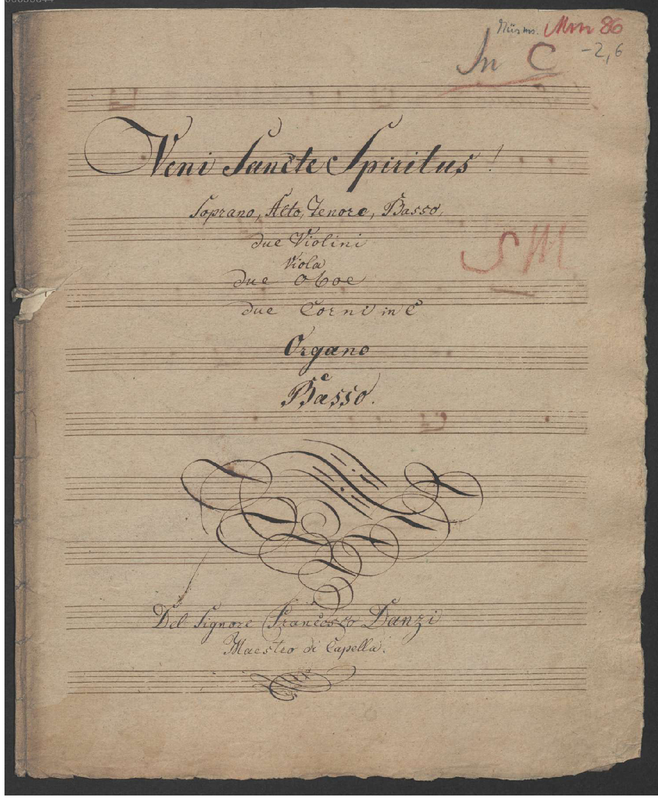 Mm 86
In C
-2,6
Veni Sancte Spiritus!
Soprano, Alto, Tenore, Basso,
due Violini
Viola
due Oboe
due Corni in C
SM
Organo
e
Basso.
Del Signore Francesco Danzi
Maestro di Capella.